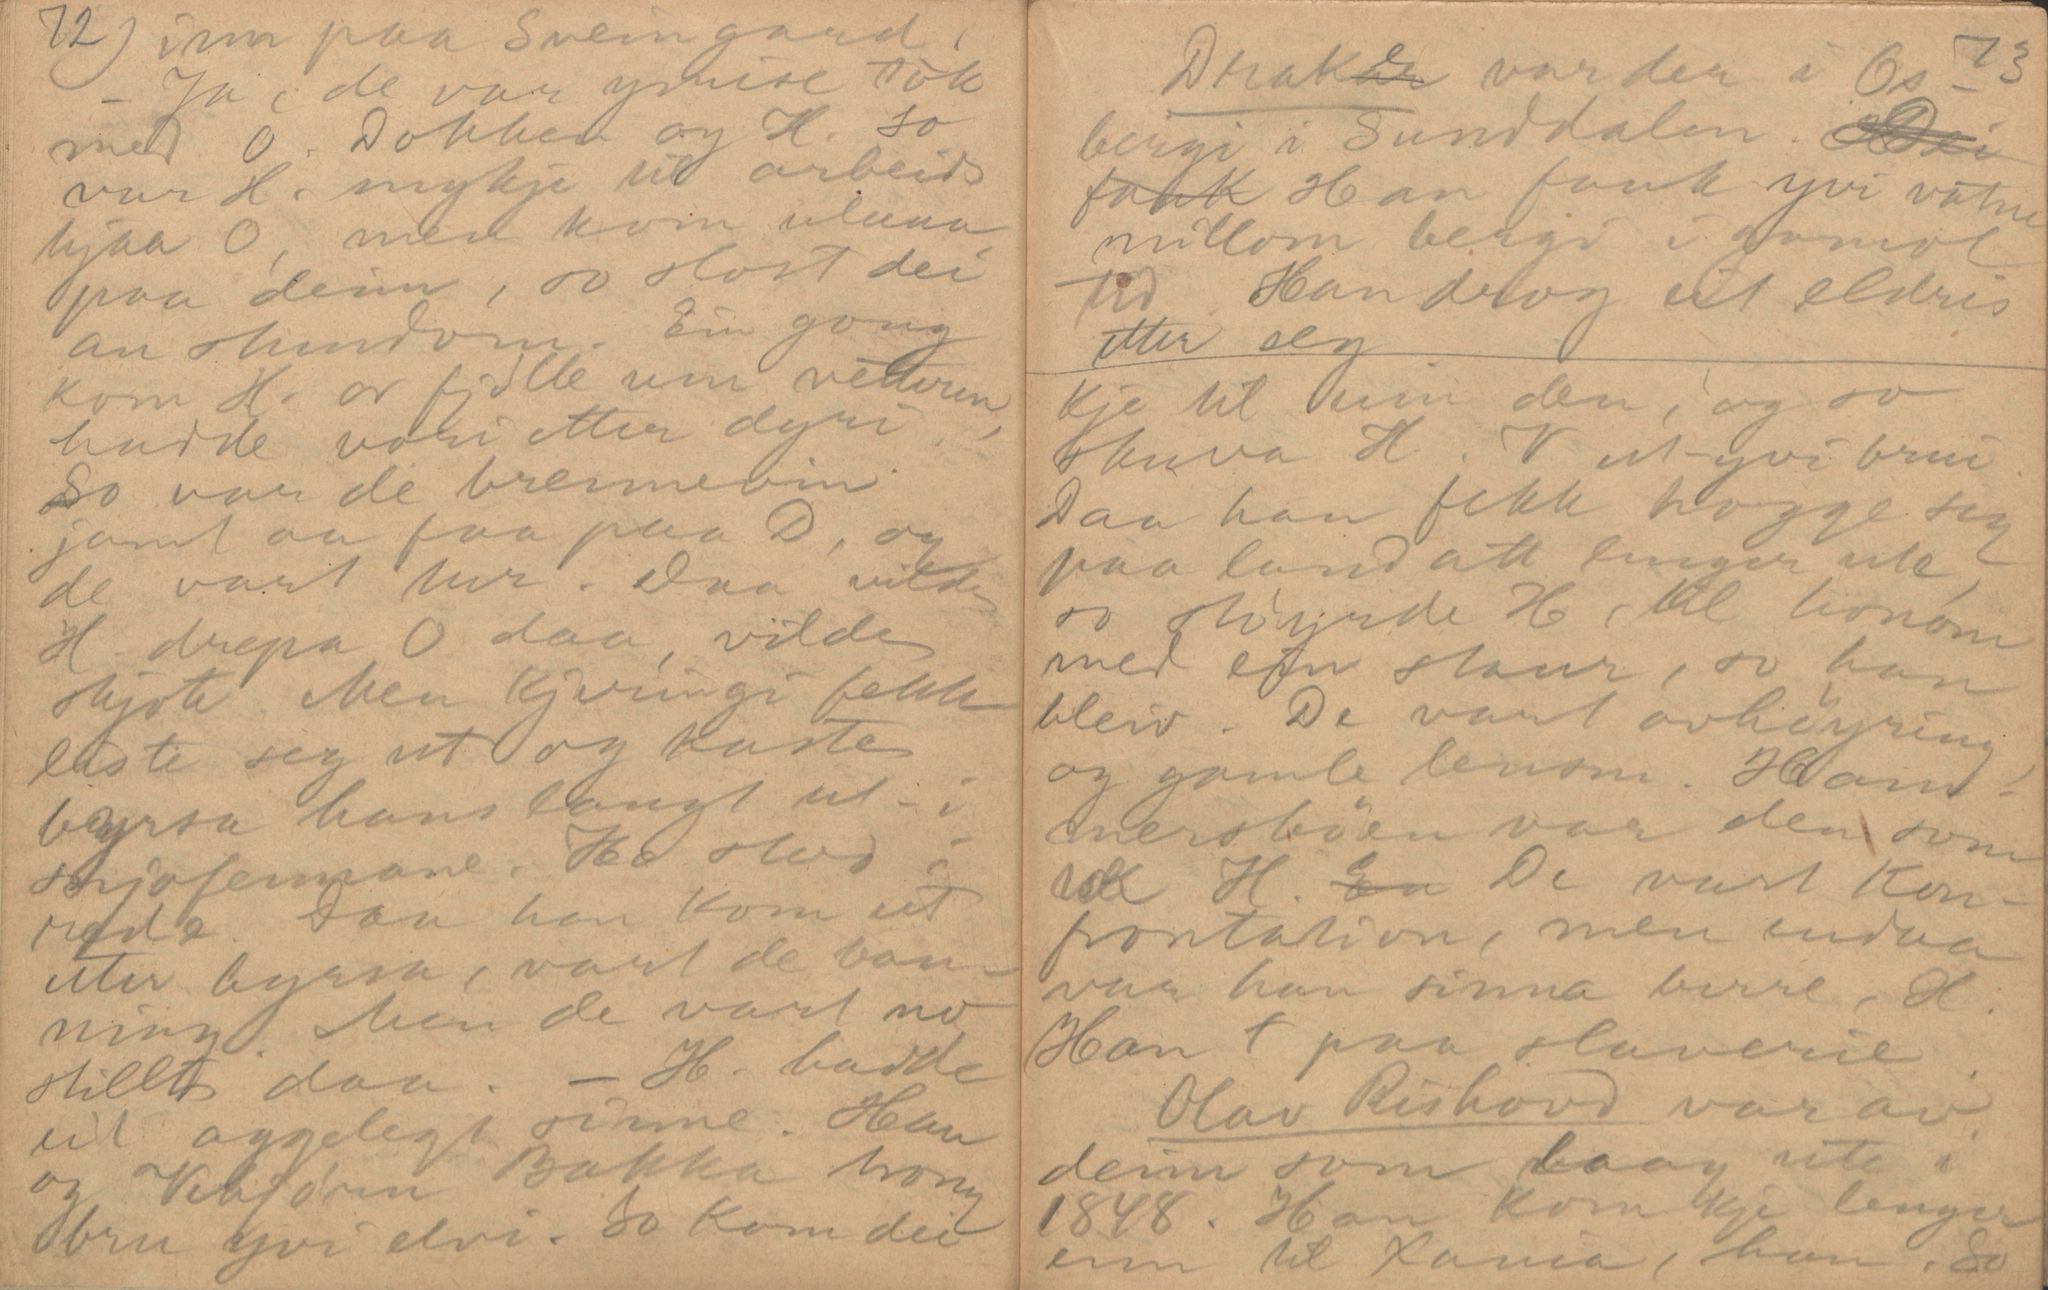 72) inn paa Sveingard,
- Ja, de var ymise tòk
med O. Dokken og H. So
var H. mykje til arbeids
hjaa O, men kom ulaaa
paa deim, so slost dei
au stundom. Ein gong
kom H. or fjølle um vetteren,
hadde vori etter dyri.
So var de brennevin
jamt aa faa paa D, og
de vart tur. Daa vilde
H drepa O daa, vilde
skjote. Men kjeringi fekk
liste seg ut og kaste
byrsa hans langt ut-i
snjofennane. Ho stod i
rede. Daa han kom ut
etter byrsa, vart de ban-
ning. Men de vart no
stillt daa. - H. hadde
eit ayggelegt sinne. Han
og Vebjørn Bakka hong
bru yvi elvi. So kom dei
73
Drake var der i Os-
bergi i Sunddalen. Dei
fauk Han fauk yvi vatne
millom bergi i gamol
tid. Han drog eit eldris
etter seg
kje til min den, og so
skuva H. V ut-yvi brui.
Daa han fekk hogge seg
paa land att lenger ute,
so støyrde H, til honom
med ein staur, so han
bleiv. De vart avhøyring,
og gamle lensm. Ham-
mersbøen var den som
tok H. En De vart kon-
frontation, men endaa
var han sinna berre, H.
Han † paa slaverie.
Olav Rishovd var av
deim som laag ute i
1848. Han kom kje lenger
enn til Xania, han. So